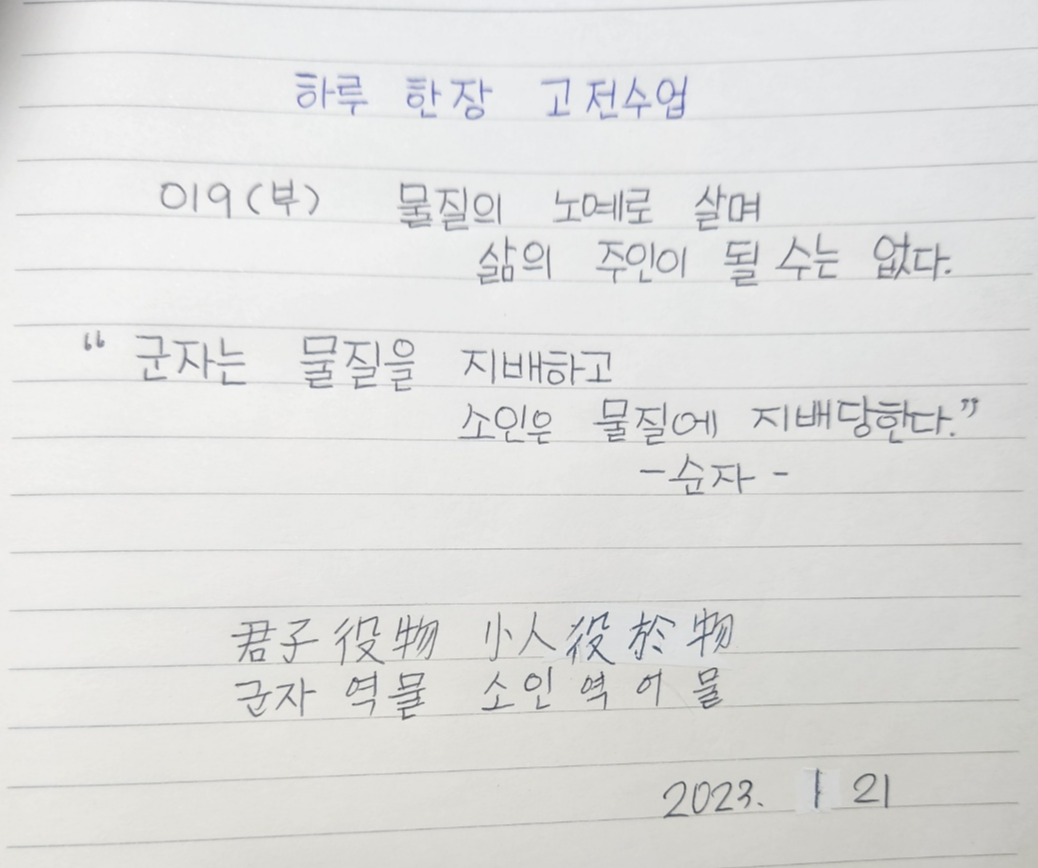 하루 한장 고전수업
019(부) 물질의 노예로 살며
삶의 주인이 될 수는 없다.
“군자는 물질을 지배하고
소인은 물질에 지배당한다.”
-순자-
君子役物 小人役於物
군자 역물 소인역어물
2023. 1 21